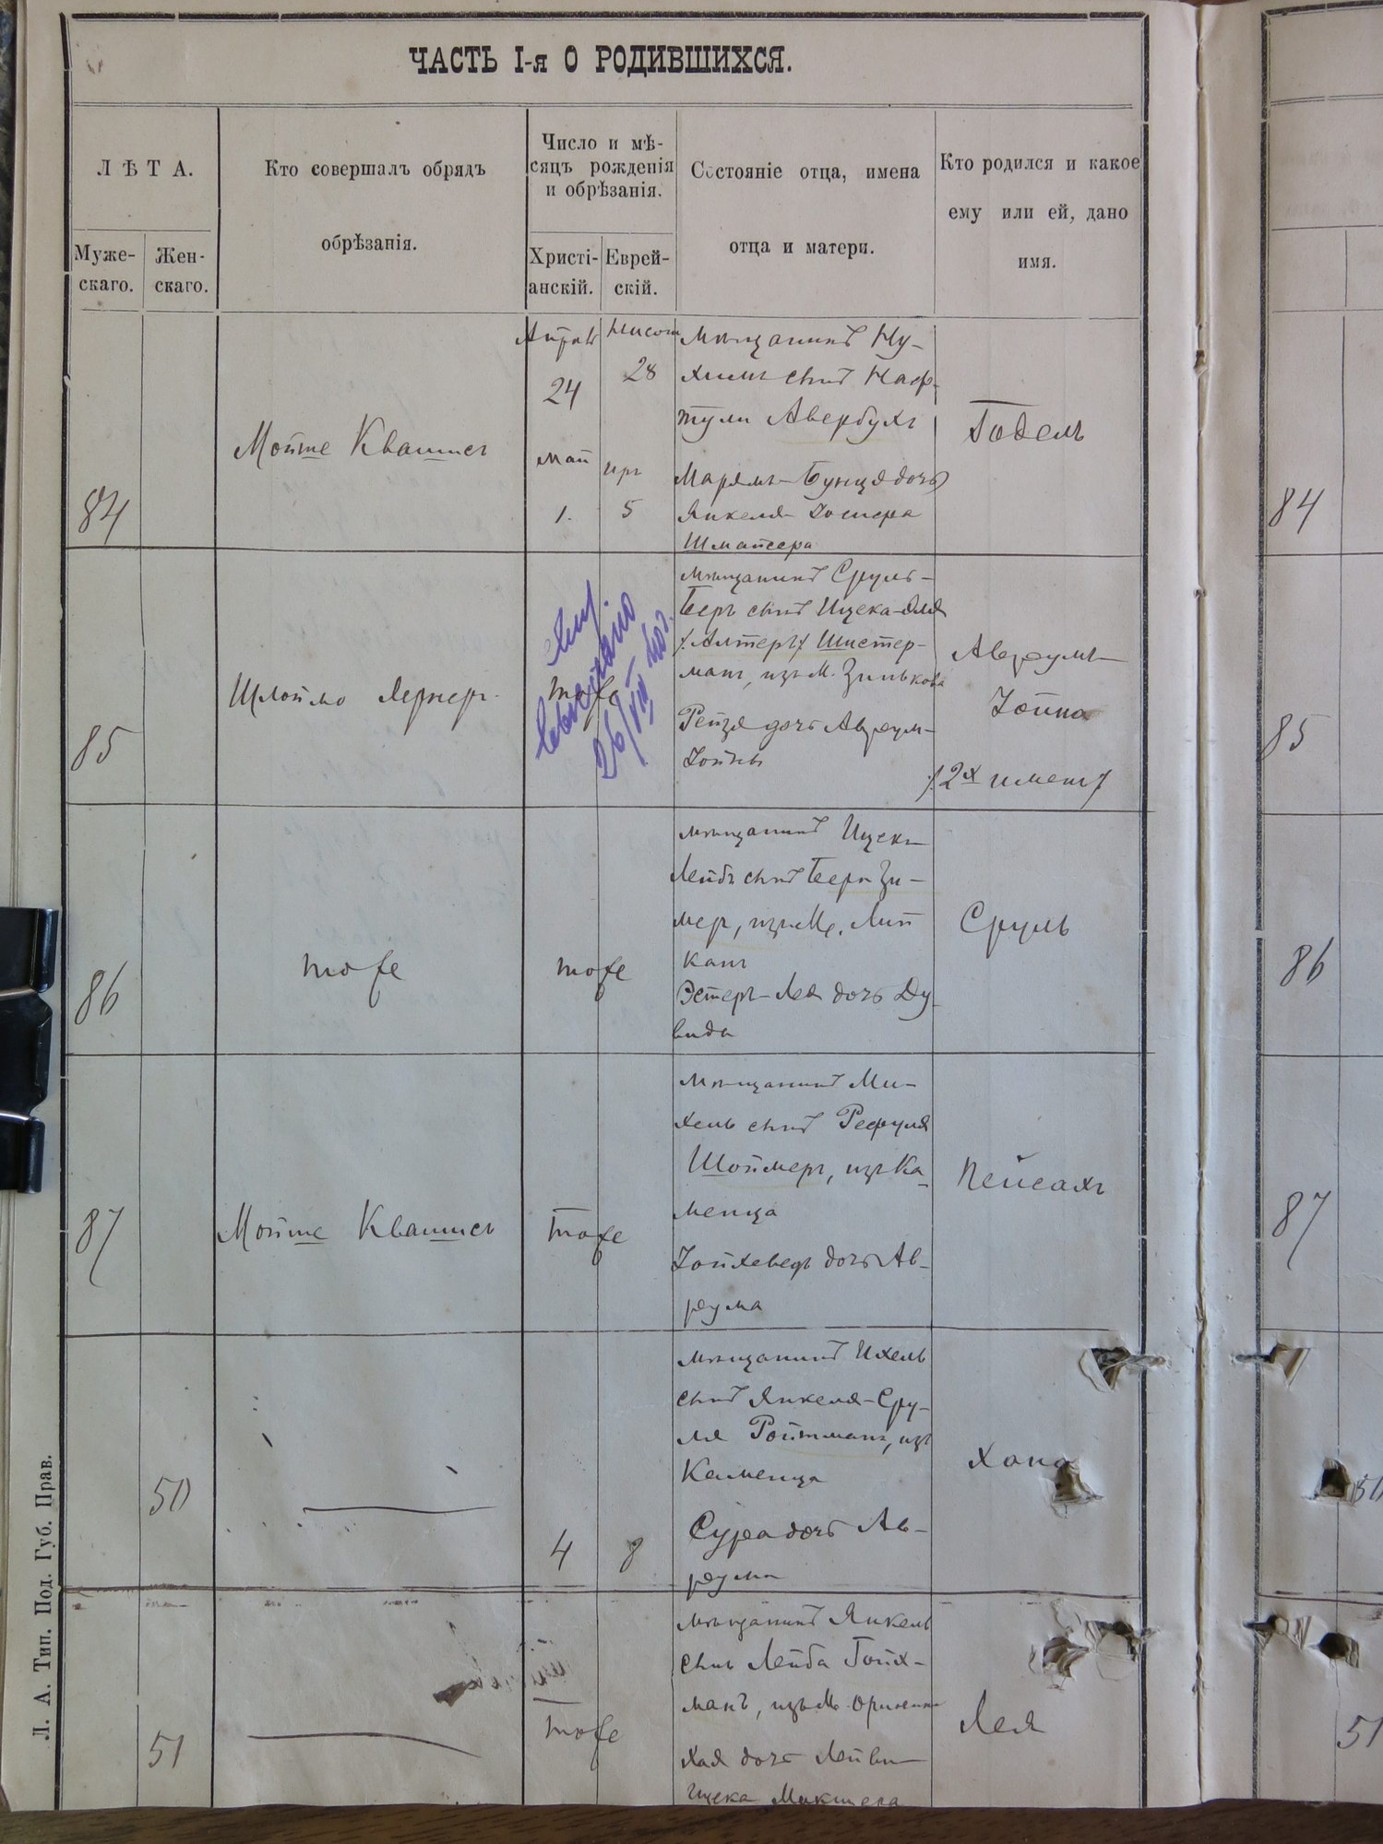 ЧАСТЬ I-я О РОДИВШИХСЯ.
ЛѢТА.
Муже-
скаго.
Жен-
скаго.
Кто совершалъ обрядъ
обрѣзанія.
Число и мѣ-
сяцъ рожденія
и обрѣзанія.
Христі-
анскій.
Еврей-
скій.
Состояніе отца, имена
отца и матери.
Кто родился и какое
ему или ей, дано
имя.
84
Мойше Квашисъ
24
Май
1.
28
Иръ
5
мѣщанинъ Ну-
химъ сынъ Наф-
тули Авербухъ
Марямъ-Бунця дочь
Янкеля
Шмайсера
Годель
84
85
Шлоймо Лернеръ
тоже
26/VIII 40 г.
мѣщанинъ Сруль-
Беръ сынъ Ицека-
/Алтеръ/ Шистер-
манъ, изъ м. Зинькова
Рейзя дочь Авруму-
Іойны
Аврумъ
Іойна
/2х именъ/
85
86
тоже
тоже
мѣщанинъ Ицекъ
Лейбъ сынъ Бера Зи-
меръ, изъ м. Лип
канъ
Эстеръ-Лея дочь Ду-
вида
Сруль
86
87
Мойше Квашисъ
тоже
мѣщанинъ Ми-
хель сынъ Рефуля
Шоймеръ, изъ Ка-
менца
Іойхеведъ дочь Ав-
рума
Пейсахъ
87
50
4
8
мѣщанинъ Ихель
сынъ Янкеля-Сру-
ля Ройтманъ, изъ
Каменца
Сура дочь Ав-
рума
Хона
50
51
тоже
мѣщанинъ Янкель
сынъ Лейба Гойх-
манъ, изъ м. Оринина
Хая дочь Лейви
Ицека
Лея
51
Л. А. Тип. Под. Губ. Прав.